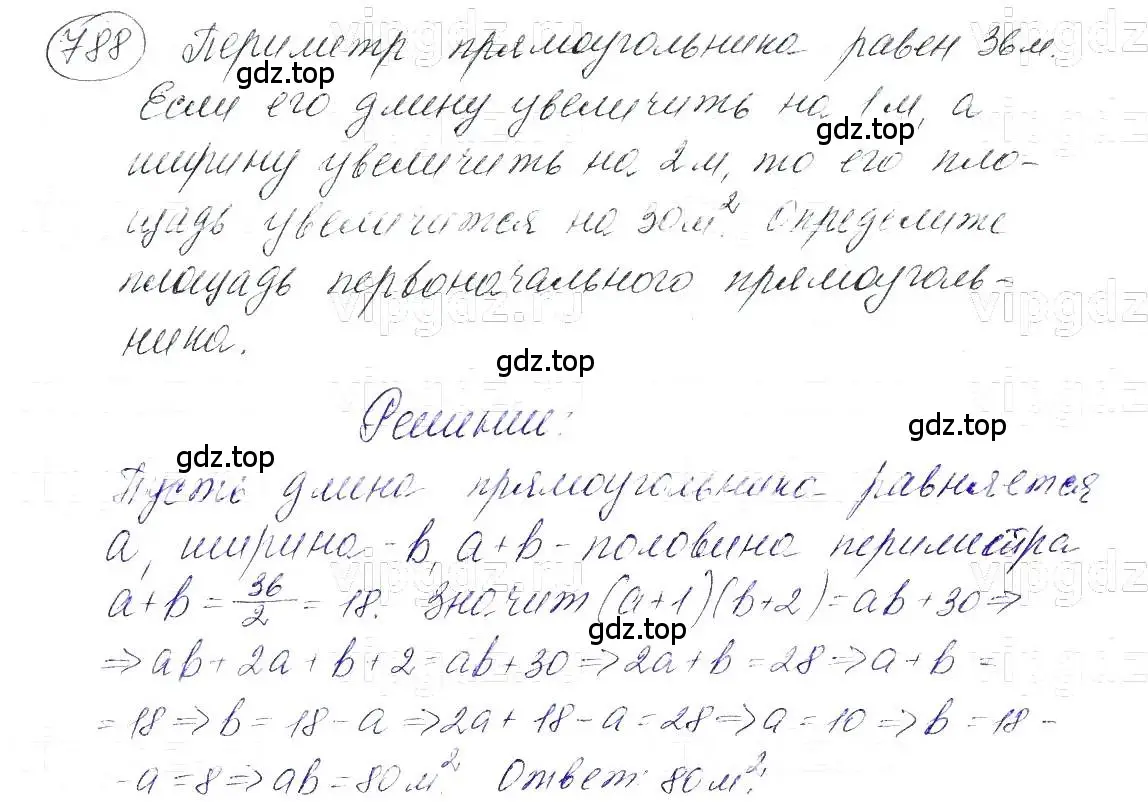 788 Периметр прямоугольника равен 36м.
gdz.top
Если его длину увеличить на 1м, а
gdz.top
ширину увеличить на 2м, то его пло-
щадь увеличится на 30м². Определите
площадь первоначального прямоуголь-
vipgdz.ru
ника.
gdz.top
Решение:
gdz.top
gdz.top
Пусть длина прямоугольника равняется
a, ширина - b, a+b - половина периметра
a+b = 36/2 = 18. Значит (a+1)(b+2) = ab+30 ⇒
gdz.top
⇒ ab+2a+b+2 = ab+30 ⇒ 2a+b = 28 ⇒ a+b =
= 18 ⇒ b = 18-a ⇒ 2a+18-a = 28 ⇒ a = 10 ⇒ b = 18-
-a = 8 ⇒ ab = 80м². Ответ: 80м².